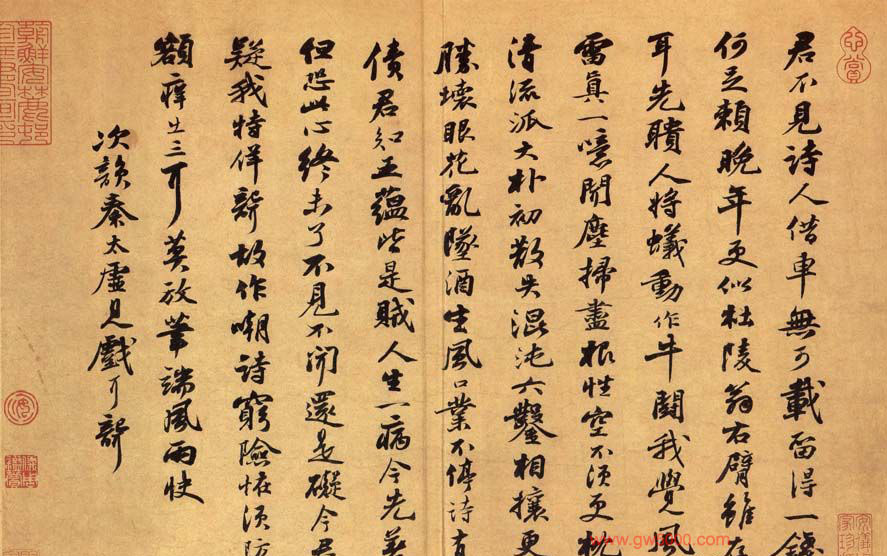 君不見詩人借車無可載留得一錢
何足賴晚年更似杜陵翁右臂雖存
耳先聵人將蟻動作牛鬪我覺風
雷真一噫聞塵掃盡根性空不須更枕
清流派大朴初散失混沌六鑿相攘更
勝壞眼花亂墜酒生風口業不停詩有
債君知五蘊皆是賊人生一病今先差
但恐此心終未了不見不聞還是礙今君
疑我特佯聾故作嘲詩窮險怪須防
額痒出三耳莫放筆端風雨快
次韻秦太虛見戲耳聾
www.gw5000.com